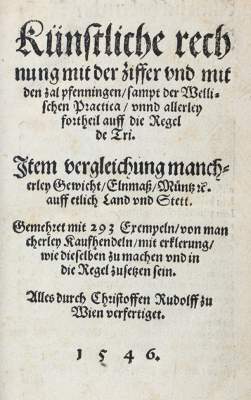 Künstliche rech
nung mit der ziffer vnd mit
den zal pfenningen/sampt der Welli-
schen Practica/vnnd allerley
fortheil auff die Regel
de Tri.
Item vergleichung manch-
erley Gewicht/Elnmaß/Müntz ꝛc.
auff etlich Land vnd Stett.
Gemehret mit 293 Exempeln/von man
cherley Kaufhendeln/mit erklerung/
wie dieselben zu machen vnd in
die Regel zusetzen sein.
Alles durch Christoffen Rudolff zu
Wien verfertiget.
1 5 4 6.